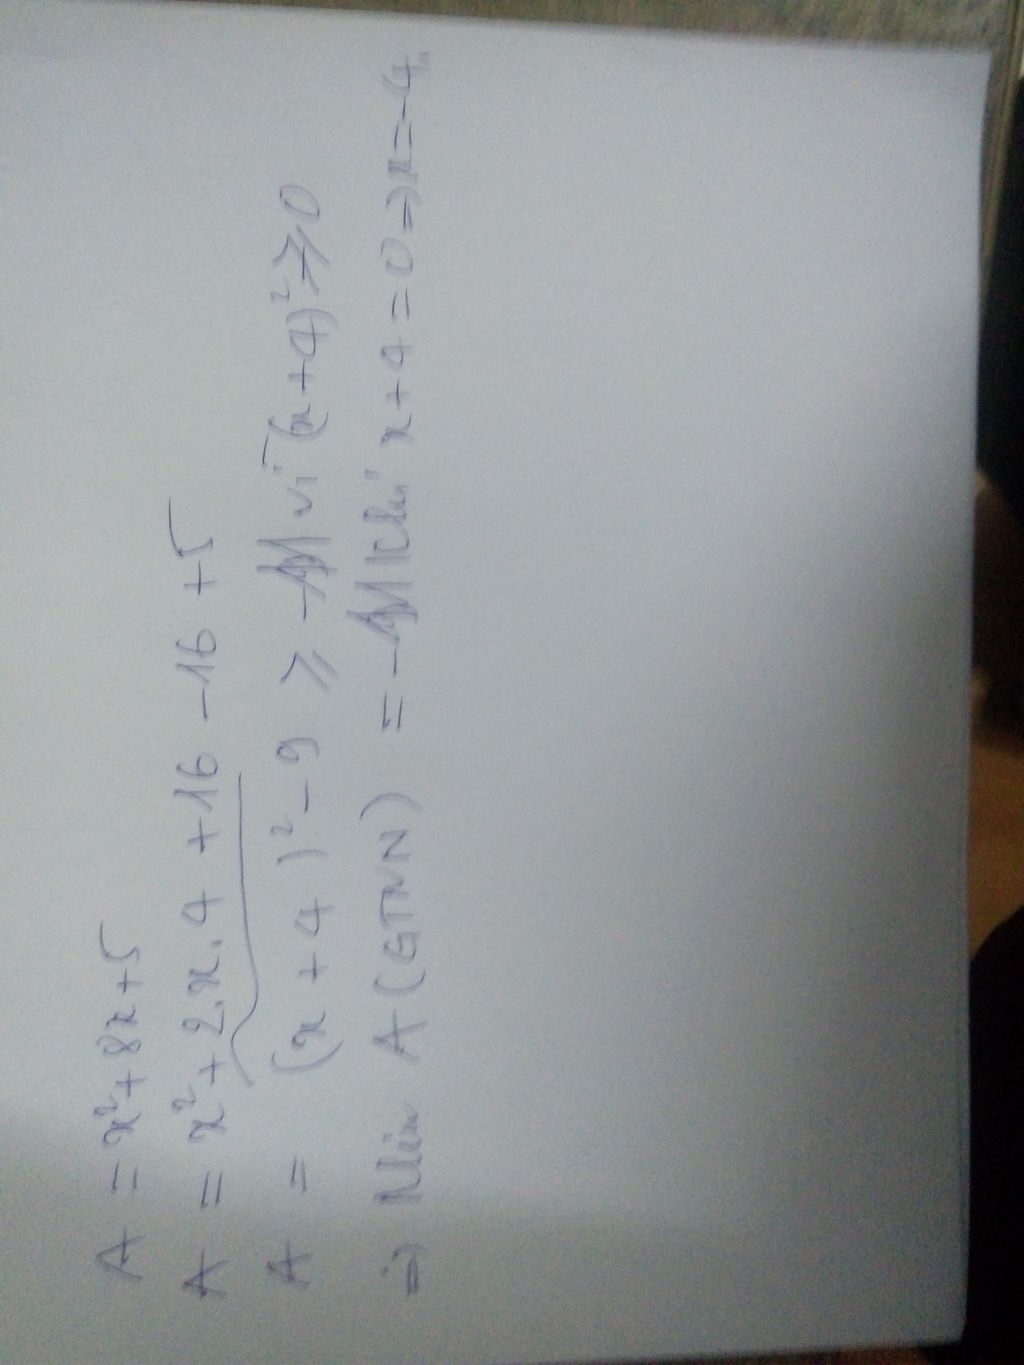 A = x² + 8x + 5
A = x² + 2.x.4 + 16 - 16 + 5
A = (x + 4)² - 9 ≥ - vì (x + 4)² ≥ 0
=> Min A (GTNN) = - khi x + 4 = 0 => x = -4